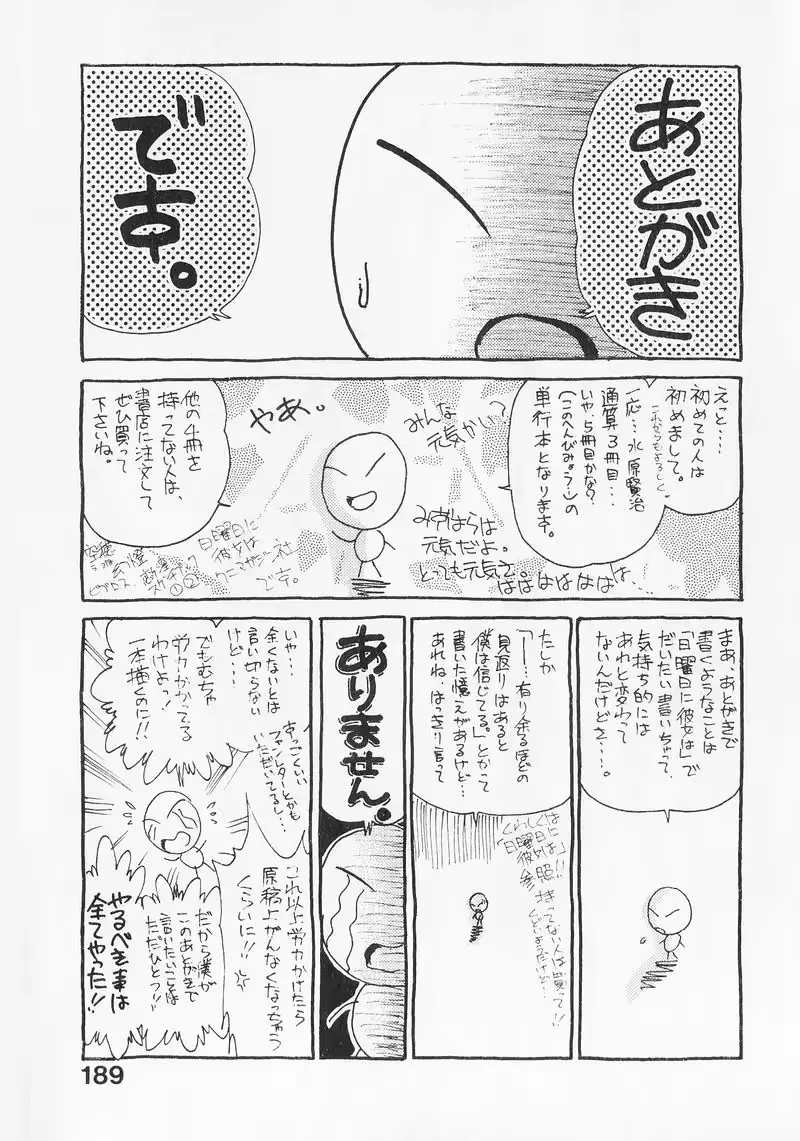 あとがき
です。
えっと…
初めての人は
初めまして。
これからもよろしく。
一応…水原賢治
通算3冊目…
いや、5冊目かな?
(このへんびみょう…)の
単行本となります。
みんな
元気かい?
やあ。
みずはらは
元気だよ。
とっても元気さ。
はははははははは…
他の4冊を
持ってない人は、
書店に注文して
ぜひ買って
下さいね。
日曜日に
彼女は
クニマガジン社
です。
まあ、あとがきで
書くようなことは
「日曜日に彼女は」で
だいたい書いちゃって、
気持ち的には
あれと変わって
ないんだけどさ…。
たしか
「…有り余るほどの
見返りはあると
僕は信じてる。」とかって
書いた憶えがあるけど…
あれね…はっきり言って
くわしくは
「日曜日に
彼女は」
参照!!
持ってない人は買って!!
くどいようだけど…
ありません。
いや…
全くないとは
言い切らない
けど…
すっごくいい
ファンレターとかも
いただいてるし…
でもむちゃ
労力かかってる
わけよっ!
一本描くのに!!
これ以上労力かけたら
原稿上がんなくなっちゃう
くらいに!!
だから僕が
このあとがきで
言いたいことは
ただひとつ!!
やるべき事は
全てやった!!
189